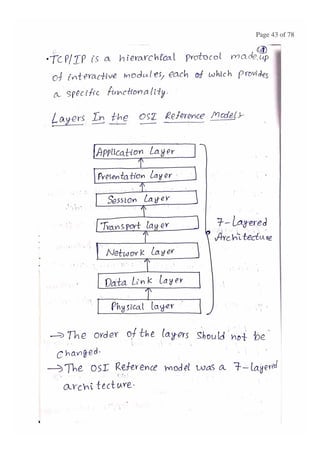 Page 43 of 78
•TCP/IP is a hierarchical protocol made up
of interactive modules, each of which provides
a specific functionality.
Layers In the OSI Reference Models
Application Layer
Presentation Layer
Session Layer
Transport layer
7-Layered
Architecture
Network Layer
Data Link Layer
Physical layer
→ The order of the layers should not be
changed.
→ The OSI Reference model was a 7-layered
architecture.